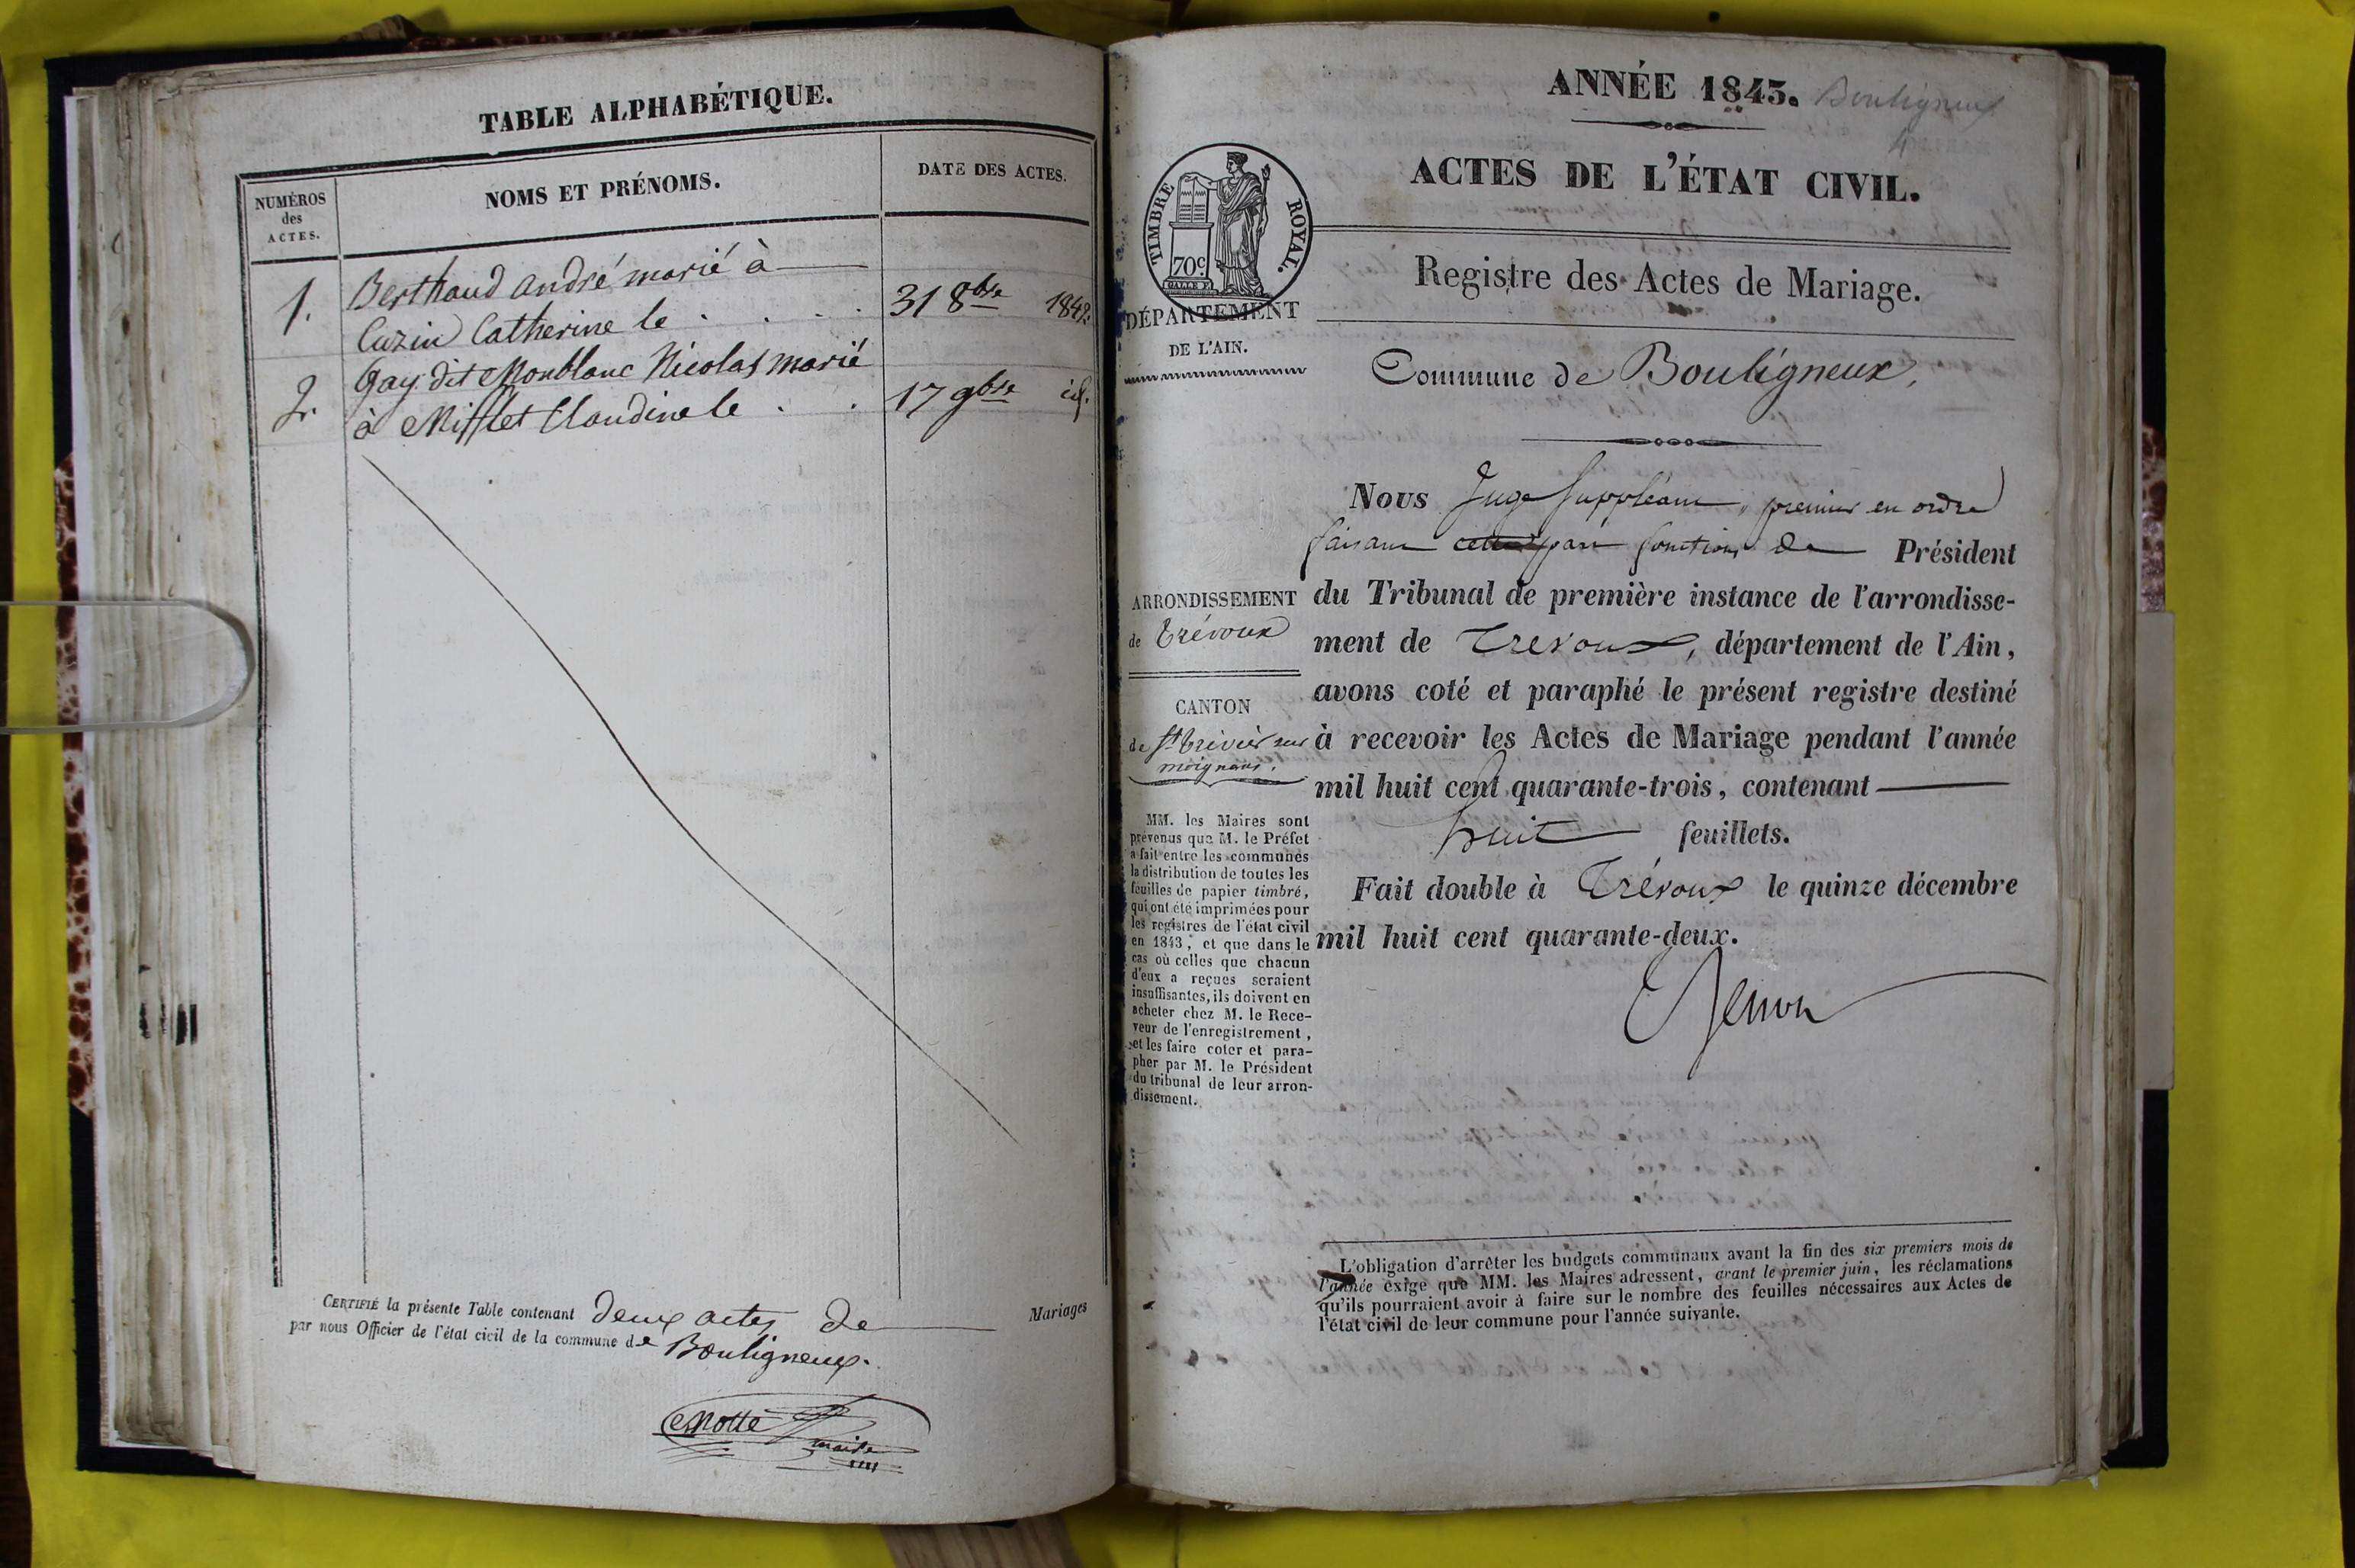 TABLE ALPHABÉTIQUE.
NUMÉROS des ACTES.
NOMS ET PRÉNOMS.
DATE DES ACTES.
1. Berthaud andré marié à
Cuzin Catherine le . . . . 31 8bre 1842.
2. Gay dit Monblanc Nicolas marié
à Mifflet Claudine le . . 17 9bre id.
CERTIFIÉ la présente Table contenant deux actes de Mariages
par nous Officier de l'état civil de la commune de Bouligneux.
Motte
maire
ANNÉE 1843. Bouligneux
4
ACTES DE L'ÉTAT CIVIL.
TIMBRE ROYAL.
70c.
DÉPARTEMENT
DE L'AIN.
Registre des Actes de Mariage.
Commune de Bouligneux,
ARRONDISSEMENT
de Trévoux
CANTON
de St trivier sur
moignans.
MM. les Maires sont
prévenus que M. le Préfet
a fait entre les communes
la distribution de toutes les
feuilles de papier timbré,
qui ont été imprimées pour
les registres de l'état civil
en 1843, et que dans le
cas où celles que chacun
d'eux a reçues seraient
insuffisantes, ils doivent en
acheter chez M. le Rece-
veur de l'enregistrement,
et les faire coter et para-
pher par M. le Président
du tribunal de leur arron-
dissement.
Nous Juge Suppléant, premier en ordre
faisant fonctions de Président
du Tribunal de première instance de l'arrondisse-
ment de Trevoux, département de l'Ain,
avons coté et paraphé le présent registre destiné
à recevoir les Actes de Mariage pendant l'année
mil huit cent quarante-trois, contenant
huit feuillets.
Fait double à Trévoux le quinze décembre
mil huit cent quarante-deux.
L'obligation d'arrêter les budgets communaux avant la fin des six premiers mois de
l'année exige que MM. les Maires adressent, avant le premier juin, les réclamations
qu'ils pourraient avoir à faire sur le nombre des feuilles nécessaires aux Actes de
l'état civil de leur commune pour l'année suivante.